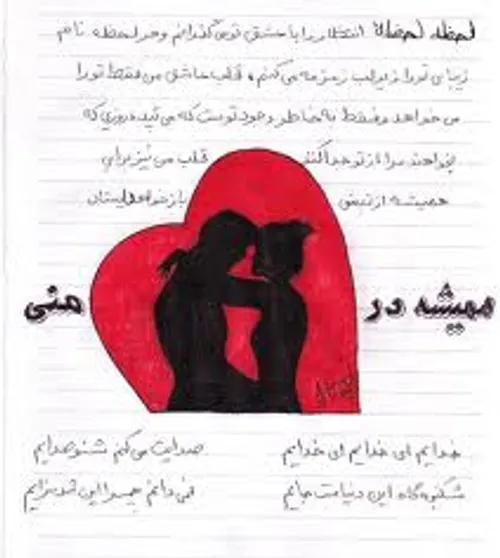 لحظه لحظه انتظار را با عشق تو می گذرانم و هر لحظه نام
زیبای تو را زیر لب زمزمه می کنم، قلب عاشق من فقط تو را
می خواهد و فقط به خاطر وجود توست که می تپد و روزی که
بخواهند مرا از تو جدا کنند قلب من نیز برای
همیشه از تپش باز خواهد ایستاد
همیشه در منی
خدایم ای خدایم ای خدایم صدایت می کنم بشنو صدایم
شکنجه گاه این دنیاست جایم نمی دانم چرا این شد سزایم